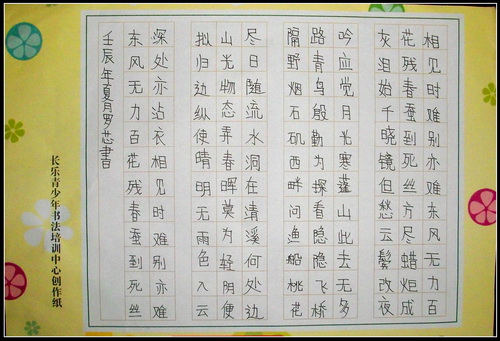 相见时难别亦难东风无力百
花残春蚕到死丝方尽蜡炬成
灰泪始千晓镜但愁云鬓改夜
吟应觉月光寒蓬山此去无多
路青鸟殷勤为探看隐隐飞桥
隔野烟石矶西畔问渔船桃花
尽日随流水洞在清溪何处边
山光物态弄春晖莫为轻阴便
拟归边纵使晴明无雨色入云
深处亦沾衣相见时难别亦难
东风无力百花残春蚕到死丝
壬辰年夏月罗芯書
长乐青少年书法培训中心创作纸